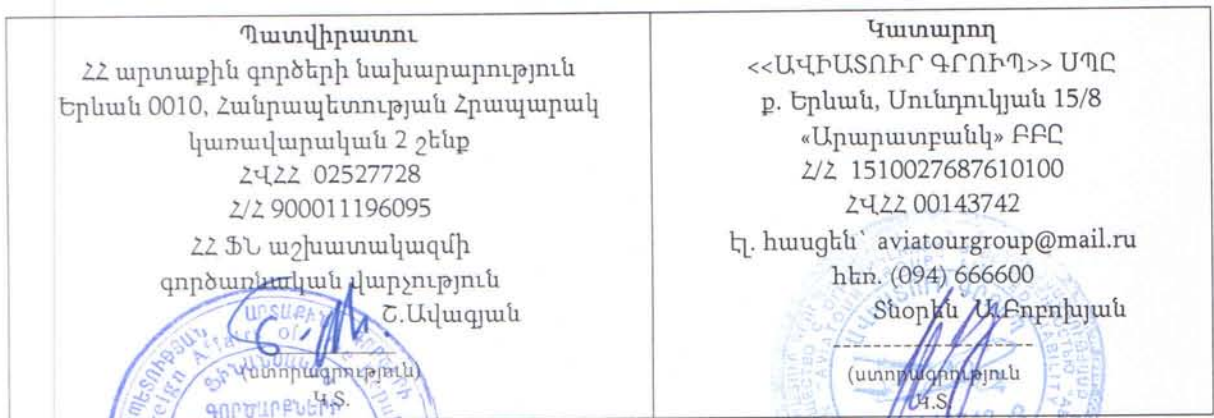 Պատվիրատու
ՀՀ արտաքին գործերի նախարարություն
Երևան 0010, Հանրապետության Հրապարակ
կառավարական 2 շենք
ՀՎՀՀ 02527728
Հ/Հ 900011196095
ՀՀ ՖՆ աշխատակազմի
գործառնական վարչություն
Շ.Ավագյան
(ստորագրություն)
Կ.Տ.
Կատարող
<<ԱՎԻԱՏՈՒՐ ԳՐՈՒՊ>> ՍՊԸ
ք. Երևան, Սունդուկյան 15/8
«Արարատբանկ» ԲԲԸ
Հ/Հ 1510027687610100
ՀՎՀՀ 00143742
էլ. հասցեն՝ aviatourgroup@mail.ru
հեռ. (094) 666600
Տնօրեն Ա.Բոբոխյան
(ստորագրություն
Կ.Տ.